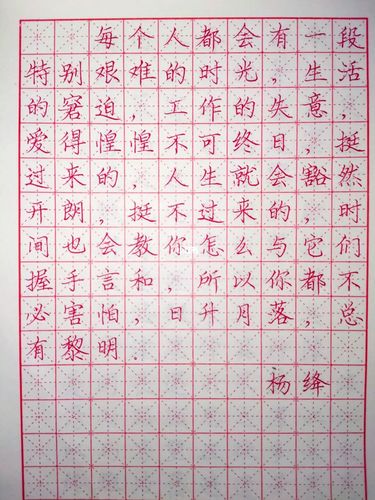 每个人都会有一段
特别艰难的时光，生活
的窘迫，工作的失意，
爱得惶惶不可终日，挺
过来的，人生就会豁然
开朗，挺不过来的，时
间也会教你怎么与它们
握手言和，所以你都不
必害怕，日升月落，总
有黎明．
杨绛